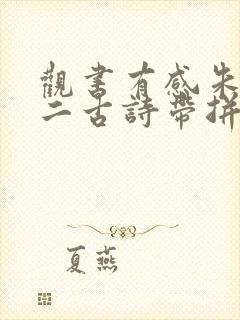 觀書有感朱
二古詩帶拼
夏燕